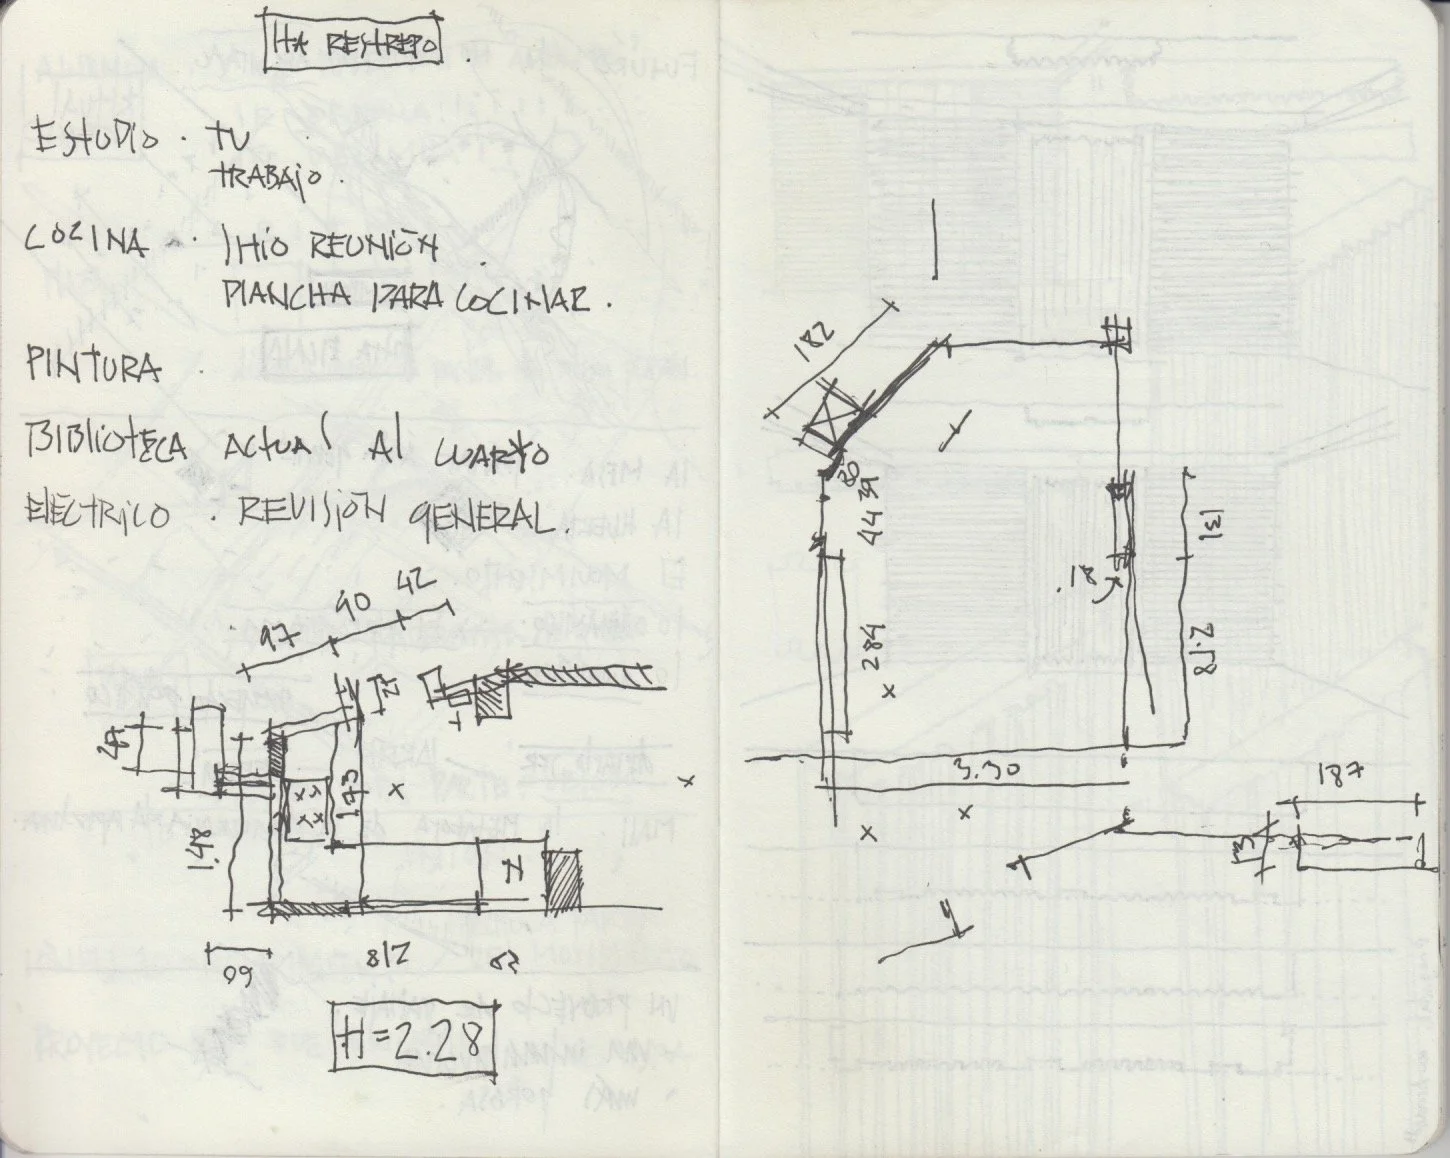 HA RESTREPO.
ESTUDIO · TU
TRABAJO.
COCINA · REUNIÓN.
PLANCHA PARA COCINAR.
PINTURA.
BIBLIOTECA ACTUAL AL CUARTO
ELÉCTRICO. REVISIÓN GENERAL.
97 90 42
1.73
148
60
218
H=2.28
182
30
39
44
284
.18
131
2.78
3.30
187